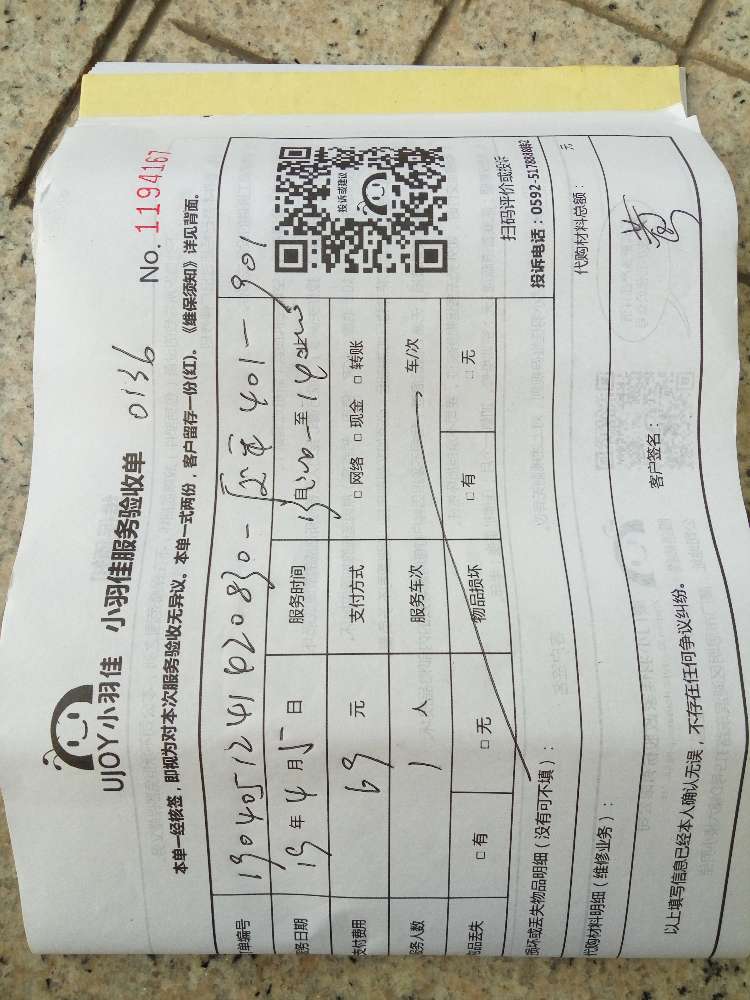 UJOY小羽佳 小羽佳服务验收单 0136
No. 1194167
本单一经核签，即视为对本次服务验收无异议。本单一式两份，客户留存一份(红)。《维保须知》详见背面。
单编号 1904051241420830 - 401-901
务日期 19年4月5日 服务时间 至
支付费用 69 元 支付方式 □ 网络 □ 现金 □ 转账
务人数 1 人 服务车次 车/次
物品丢失 □ 有 □ 无 物品损坏 □ 有 □ 无
投诉或建议
扫码评价或投诉
投诉电话：0592-5178888转2
损坏或丢失物品明细（没有可不填）：
代购材料明细（维修业务）： 代购材料总额： 元
以上填写信息已经本人确认无误，不存在任何争议纠纷。 客户签名：